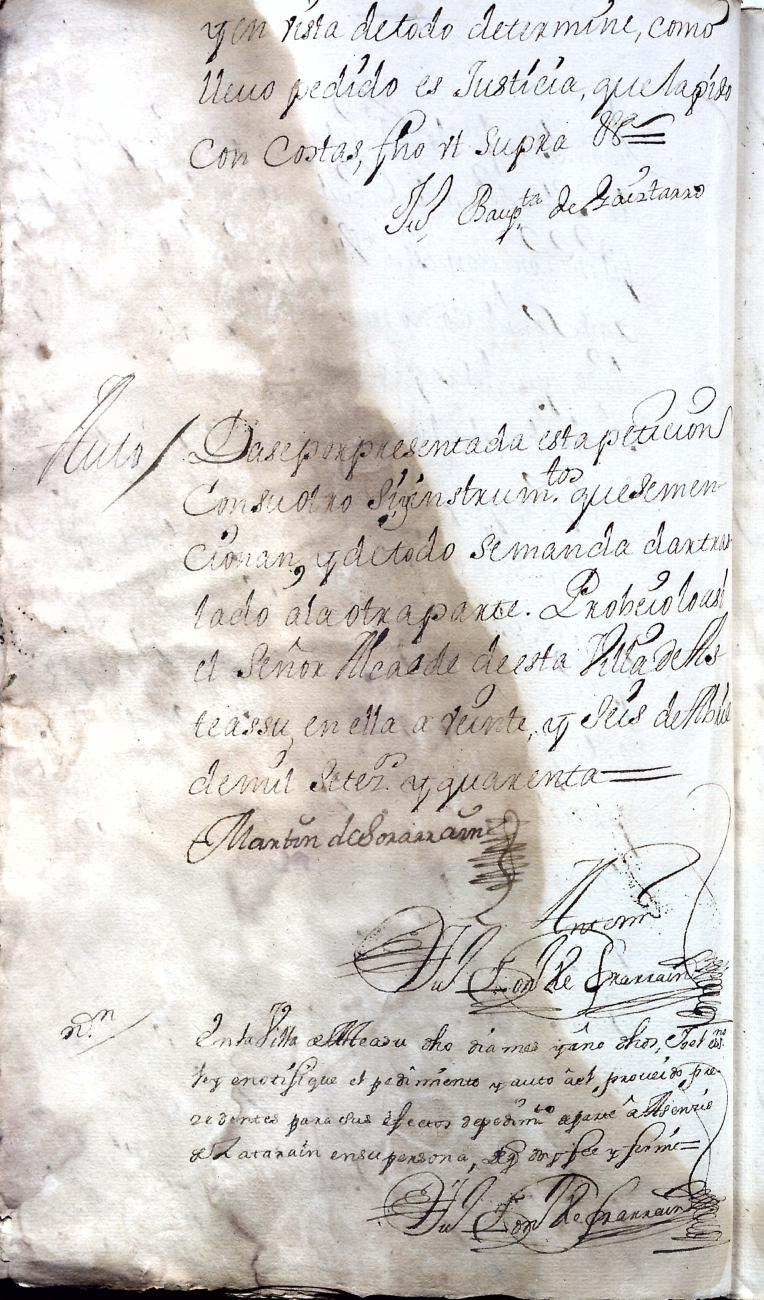 y en vista de todo determine, como
llevo pedido es Justicia, que la pido
Con Costas, fho vt supra
Ju. Bap.ta de
Auto / Dase por presentada esta petición
Con su otro Si, y instrum.tos que se men-
cionan, y de todo se manda dar tras
lado a la otra parte. Probeiolo assi
el Señor Alcalde de esta Villa de As
teassu, en ella a veinte, y Seis de Abril
de mil Setez.s y quarenta
Martin de Sorarrain
Ante mi
Ju.
n.on / En la Villa de Asteasu dho dia mes y año dhos, Yo el ess.no
ley e notifique el pedimiento y auto a el proveido, pre-
zedentes para sus efectos de pedim.to de parte a Asenzio
de Latarain en su persona, de q doy fee y firme
Ju.